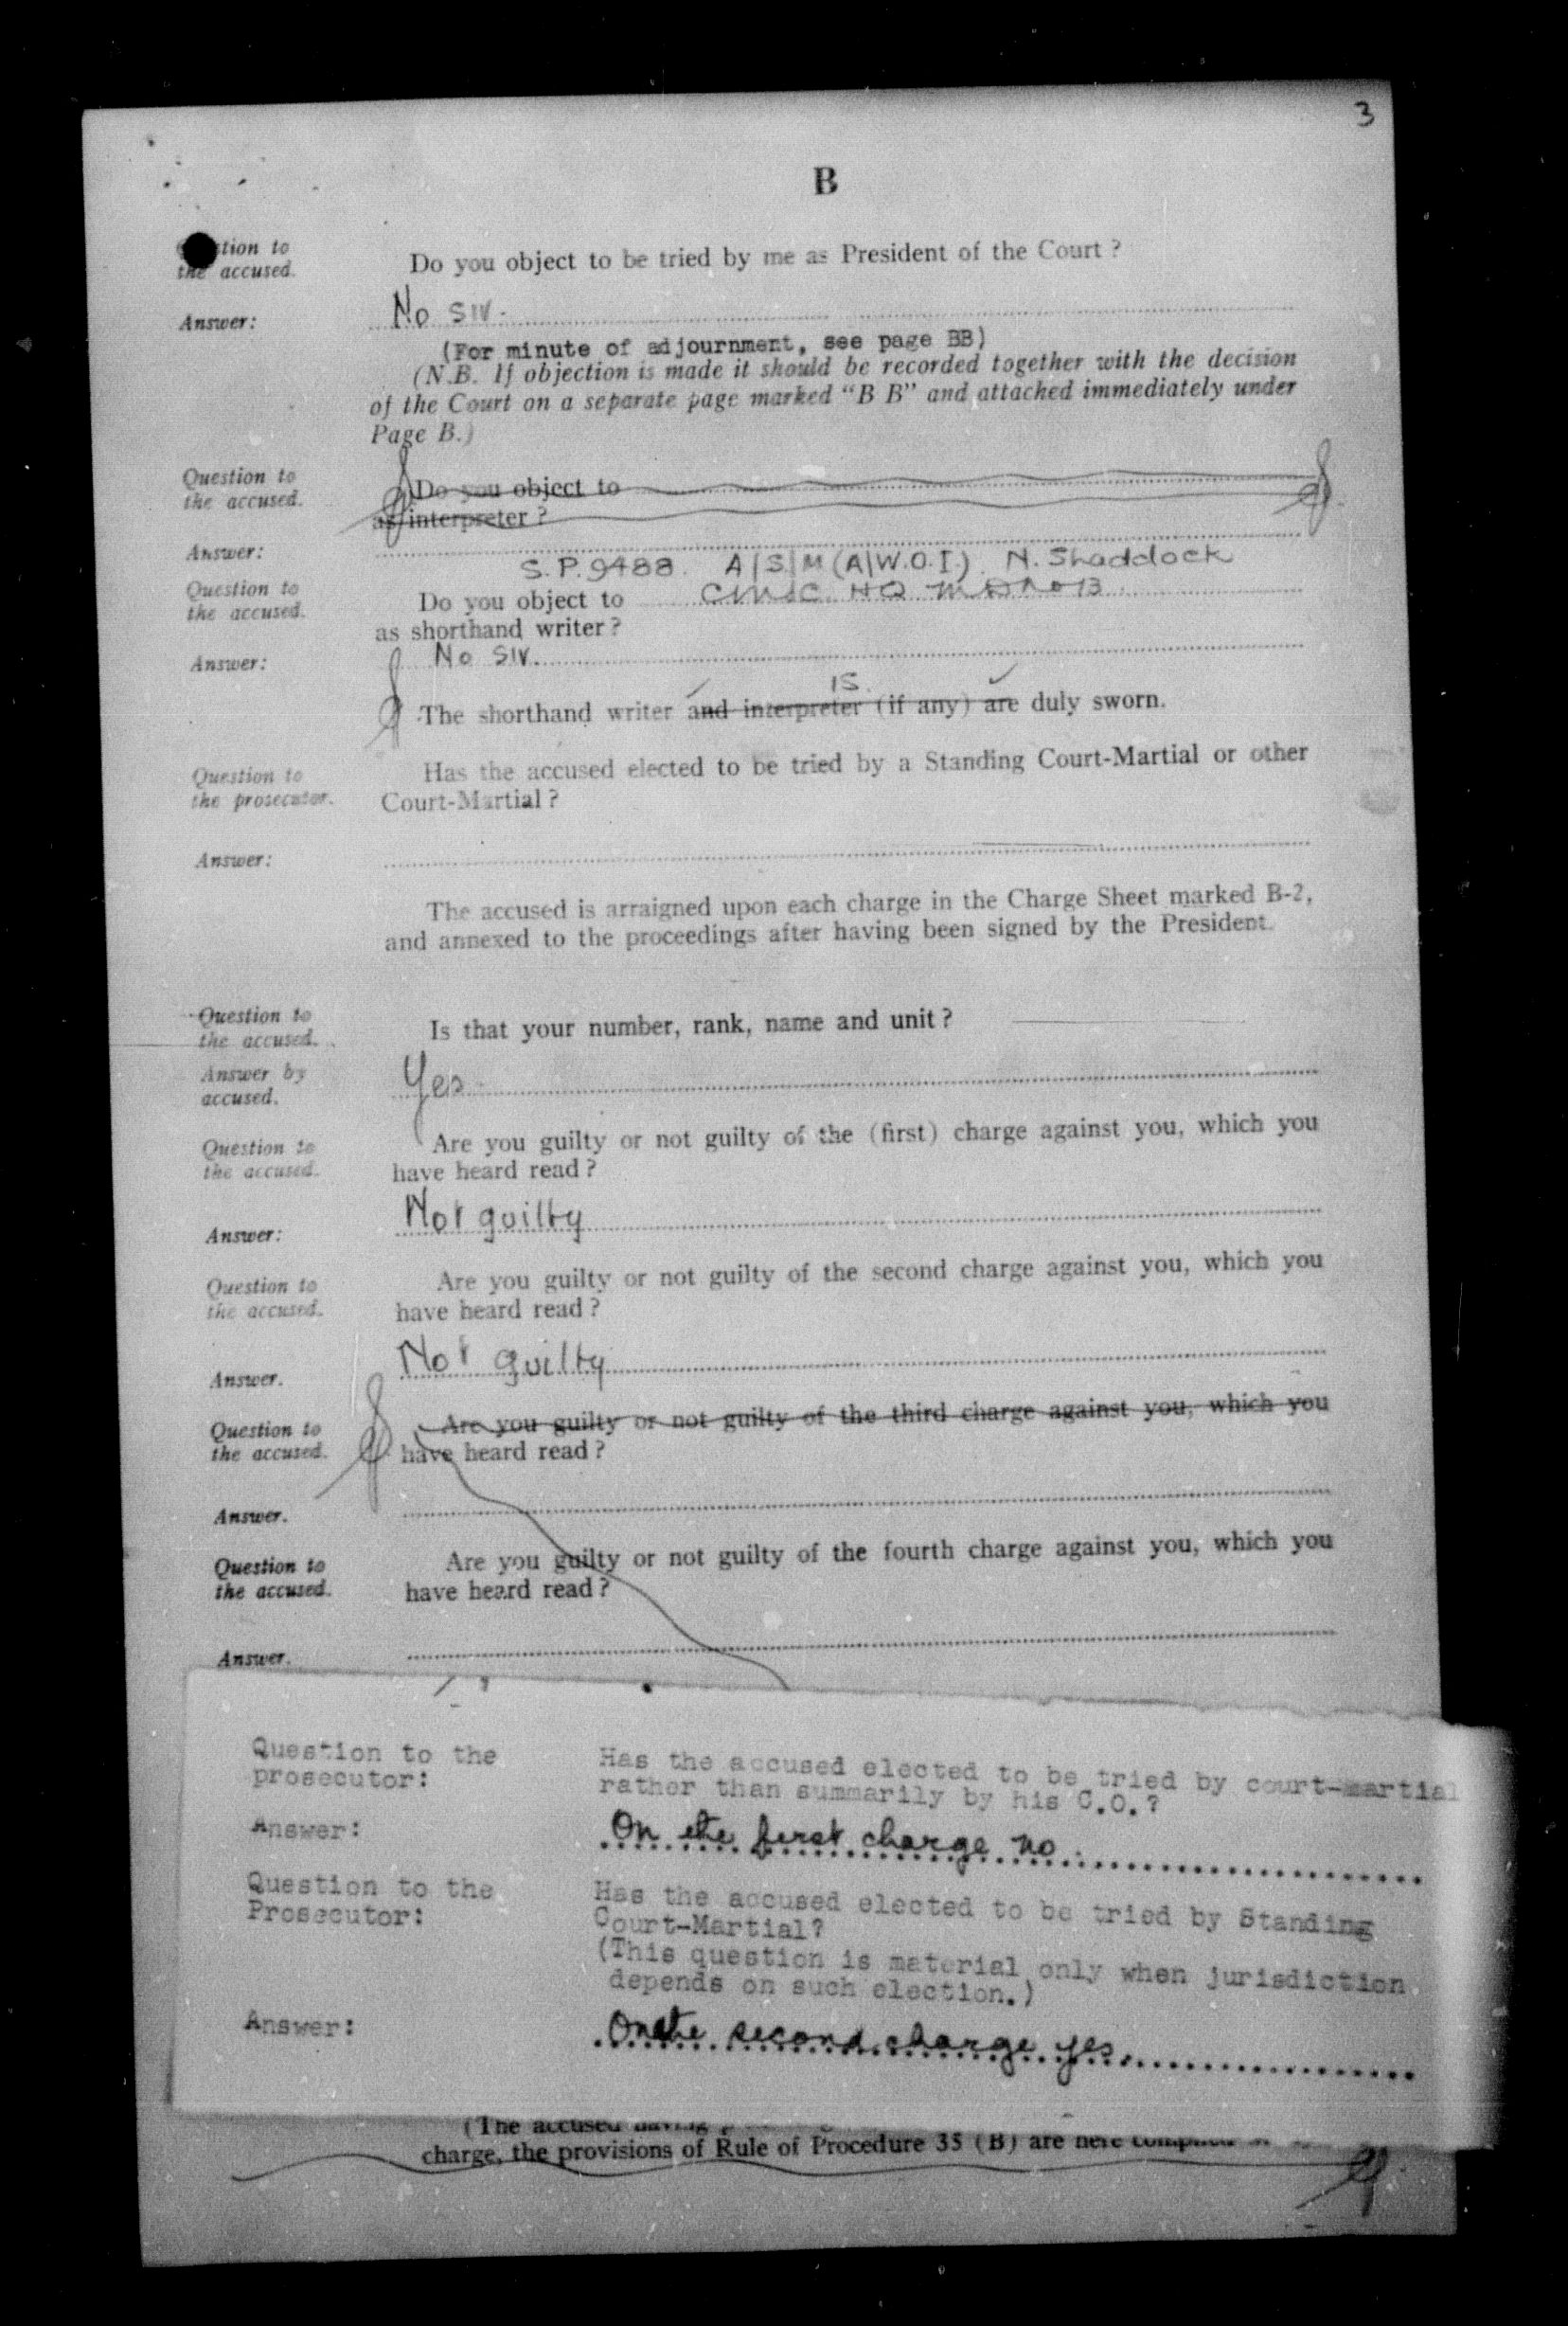 3
B
Question to
the accused.
Do you object to be tried by me as President of the Court?
Answer:
No sir.
(For minute of adjournment, see page BB)
(N.B. If objection is made it should be recorded together with the decision
of the Court on a separate page marked "B B" and attached immediately under
Page B.)
Question to
the accused.
Do you object to
as interpreter?
Answer:
S.P. 9488. A/S/M (A/W.O.I.) N. Shaddock
Question to
the accused.
Do you object to HQ
as shorthand writer?
Answer:
No sir.
is
The shorthand writer and interpreter (if any) are duly sworn.
Question to
the prosecutor.
Has the accused elected to be tried by a Standing Court-Martial or other
Court-Martial?
Answer:
The accused is arraigned upon each charge in the Charge Sheet marked B-2,
and annexed to the proceedings after having been signed by the President.
Question to
the accused.
Is that your number, rank, name and unit?
Answer by
accused.
Yes
Question to
the accused.
Are you guilty or not guilty of the (first) charge against you, which you
have heard read?
Answer:
Not guilty
Question to
the accused.
Are you guilty or not guilty of the second charge against you, which you
have heard read?
Answer.
Not guilty
Question to
the accused.
Are you guilty or not guilty of the third charge against you, which you
have heard read?
Answer.
Question to
the accused.
Are you guilty or not guilty of the fourth charge against you, which you
have heard read?
Answer.
Question to the
prosecutor:
Has the accused elected to be tried by court-martial
rather than summarily by his C.O.?
Answer:
On the first charge no.
Question to the
Prosecutor:
Has the accused elected to be tried by Standing
Court-Martial?
(This question is material only when jurisdiction
depends on such election.)
Answer:
On the second charge yes.
(The accused having
charge, the provisions of Rule of Procedure 35 (B) are here complied